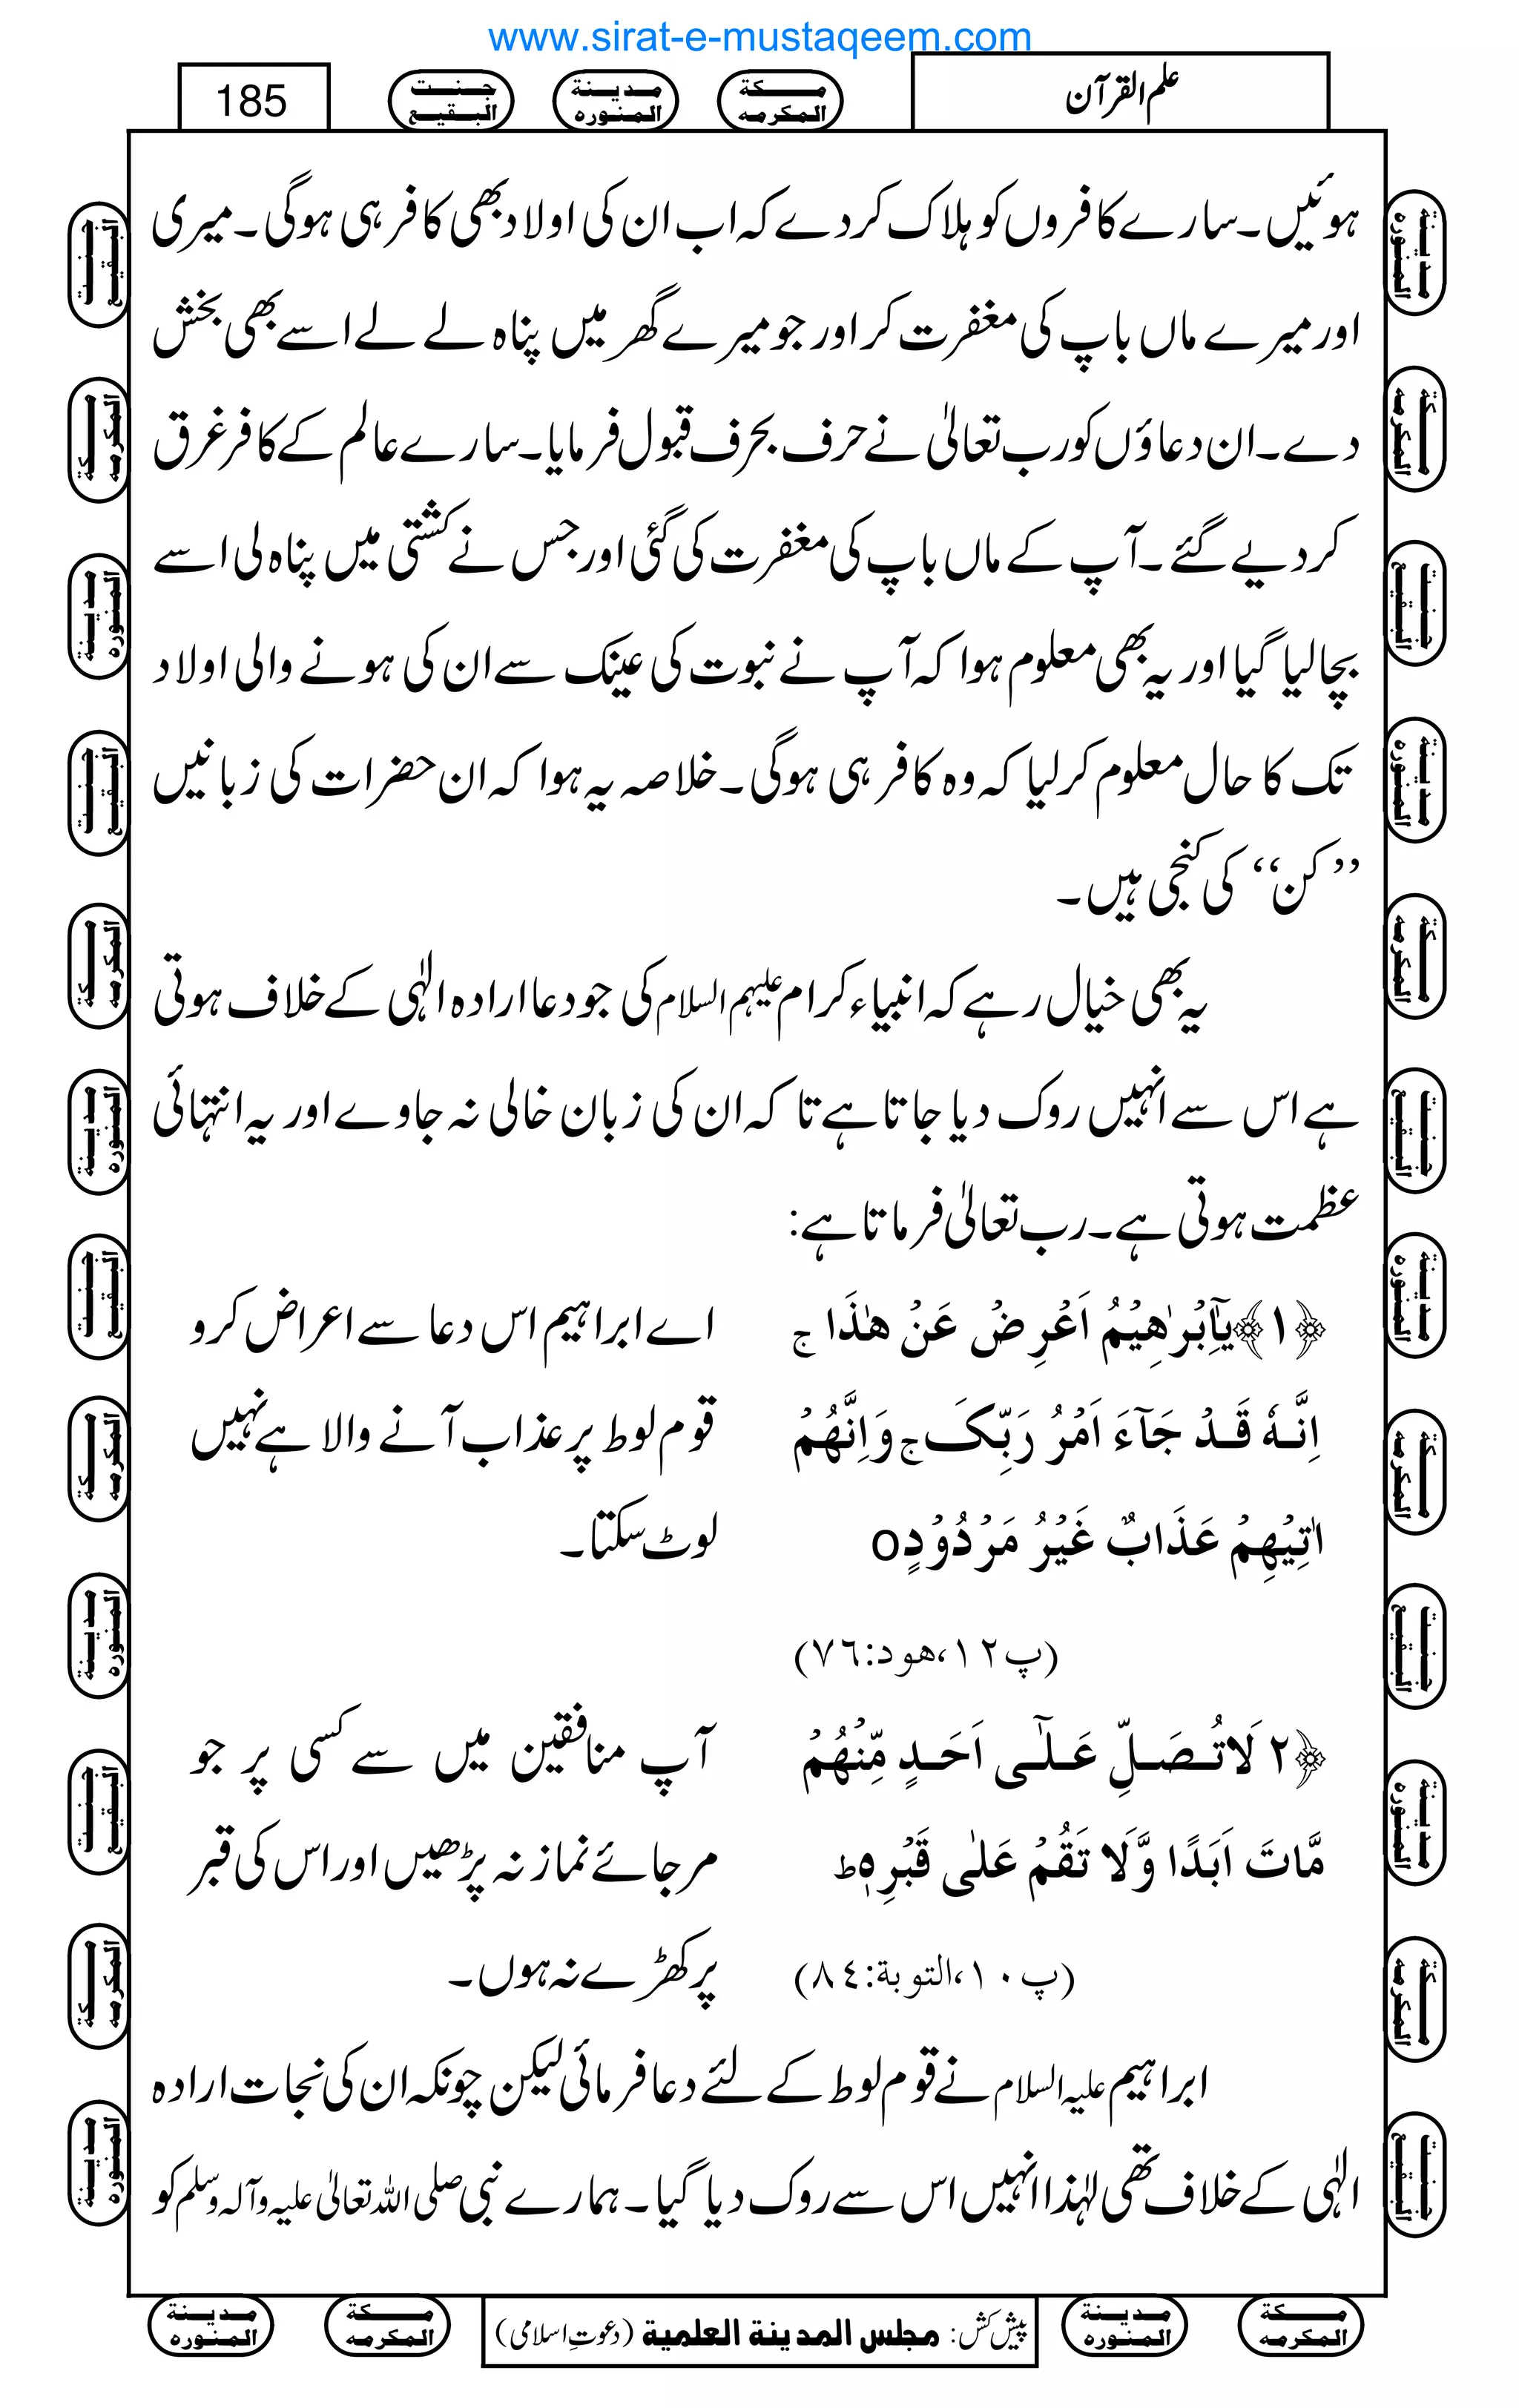 www.sirat-e-mustaqeem.com
علم القرآن
مكة المكرمه
مدينة المنوره
جنت البقيع
185
ہوئیں۔ سارے کافروں کو ہلاک کردے کہ اب ان کی اولاد بھی کافر ہی ہوگی۔ میری
اور میرے ماں باپ کی مغفرت کر اور جو میرے گھر میں پناہ لے لے اسے بھی بخش
دے۔ ان دعاؤں کو رب تعالٰی نے حرف بحرف قبول فرمایا۔ سارے عالم کے کافر غرق
کردیے گئے۔ آپ کے ماں باپ کی مغفرت کی گئی اور جس نے کشتی میں پناہ لی اسے
بچالیا گیا اور یہ بھی معلوم ہوا کہ آپ نے نبوت کی عینک سے ان کی ہونے والی اولاد
تک کا حال معلوم کرلیا کہ وہ کافر ہی ہوگی۔ خلاصہ یہ ہوا کہ ان حضرات کی زبانیں
’’کن‘‘ کی کنجی ہیں۔
یہ بھی خیال رہے کہ انبیاء کرام علیہم السلام کی جو دعا ارادہ الٰہی کے خلاف ہوتی
ہے اس سے انہیں روک دیا جاتا ہے تا کہ ان کی زبان خالی نہ جاوے اور یہ انتہائی
عظمت ہوتی ہے۔ رب تعالٰی فرماتا ہے:
﴿۱﴾ یٰۤاِبْرٰهِیْمُ اَعْرِضْ عَنْ هٰذَا ج
اے ابراہیم اس دعا سے اعراض کرو
اِنَّهٗ قَدْ جَآءَ اَمْرُ رَبِّکَ ج وَاِنَّهُمْ
قوم لوط پر عذاب آنے والا ہے نہیں
اٰتِیْهِمْ عَذَابٌ غَیْرُ مَرْدُوْدٍ o
لوٹ سکتا۔
(پ۱۲،هود:۷٦)
﴿۲ لَا تُصَلِّ عَلٰۤی اَحَدٍ مِّنْهُمْ
آپ منافقین میں سے کسی پر جو
مَّاتَ اَبَدًا وَّ لَا تَقُمْ عَلٰی قَبْرِهٖ ط
مرجائے نماز نہ پڑھیں اور اس کی قبر
(پ۱۰،التوبة:۸٤)
پر کھڑے نہ ہوں۔
ابراہیم علیہ السلام نے قوم لوط کے لئے دعا فرمائی لیکن چونکہ ان کی نجات ارادہ
الٰہی کے خلاف تھی لہٰذا انہیں اس سے روک دیا گیا۔ ہمارے نبی صلی اللہ تعالٰی علیہ وآلہ وسلم کو
پیش کش: مجلس المدينة العلمية (دعوتِ اسلامی)
مكة المكرمه
مدينة المنوره
مكة المكرمه
مدينة المنوره